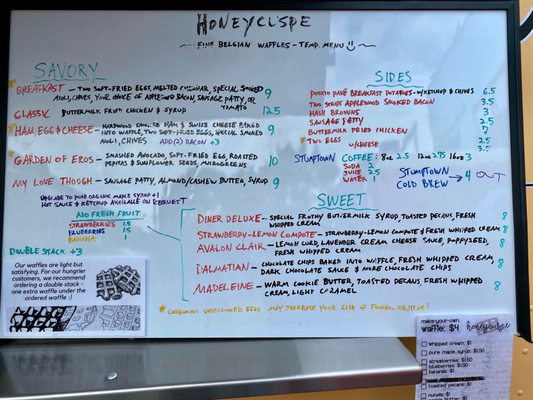 HONEYCUSPE
~ FINE BELGIAN WAFFLES - TEMP. MENU ~
SAVORY
* BREAKFAST - TWO SOFT-FRIED EGGS, MELTED CHEDDAR, SPECIAL SMOKED
AIOLI, CHIVES, YOUR CHOICE OF APPLEWOOD BACON, SAUSAGE PATTY, OR 9
TOMATO
CLASSIC BUTTERMILK FRIED CHICKEN & SYRUP 12.5
* HAM, EGG & CHEESE - HARDWOOD SMOKED HAM & SWISS CHEESE BAKED
INTO WAFFLE, TWO SOFT-FRIED EGGS, SPECIAL SMOKED 9
AIOLI, CHIVES ADD(2) BACON +3
* GARDEN OF EROS - SMASHED AVOCADO, SOFT-FRIED EGG, ROASTED 10
PEPITAS & SUNFLOWER SEEDS, MICROGREENS
MY LOVE THOUGH - SAUSAGE PATTY, ALMOND/CASHEW BUTTER, SYRUP 9
UPGRADE TO PURE ORGANIC MAPLE SYRUP +1
HOT SAUCE & KETCHUP AVAILABLE ON REQUEST
ADD FRESH FRUIT
STRAWBERRIES 1.5
BLUEBERRIES 1.5
BANANA 1
DOUBLE STACK +3
Our waffles are light but
satisfying. For our hungrier
customers, we recommend
ordering a double stack -
one extra waffle under the
ordered waffle :)
SIDES
POTATO PAVÉ BREAKFAST POTATOES - W/KETCHUP & CHIVES 6.5
TWO STRIPS APPLEWOOD SMOKED BACON 3.5
HASH BROWNS 3
SAUSAGE PATTY 2.5
BUTTERMILK FRIED CHICKEN 7
* TWO EGGS 2.5
W/CHEESE 3.5
STUMPTOWN COFFEE: 8oz 2.5 12oz 2.75 16oz 3
SODA 2
JUICE 2.5
WATER 1
STUMPTOWN
COLD BREW → 4 OUT
SWEET
DINER DELUXE - SPECIAL FROTHY BUTTERMILK SYRUP, TOASTED PECANS, FRESH 8
WHIPPED CREAM
STRAWBERRY-LEMON COMPOTE - STRAWBERRY-LEMON COMPOTE & FRESH WHIPPED CREAM 8
AVALON CLAIR - LEMON CURD, LAVENDER CREAM CHEESE SAUCE, POPPYSEED, 8
FRESH WHIPPED CREAM
DALMATIAN - CHOCOLATE CHIPS BAKED INTO WAFFLE, FRESH WHIPPED CREAM, 8
DARK CHOCOLATE SAUCE & MORE CHOCOLATE CHIPS
MADELEINE - WARM COOKIE BUTTER, TOASTED PECANS FRESH WHIPPED 8
CREAM, LIGHT CARAMEL
* CONSUMING UNDERCOOKED EGGS MAY INCREASE YOUR RISK OF FOODBORNE ILLNESS
make-your-own
waffle: $4
whipped cream: $1
pure maple syrup: $1.50
strawberries: $1.50
blueberries: $1.50
banana: $1
toasted pecans: $1
nutella: $1